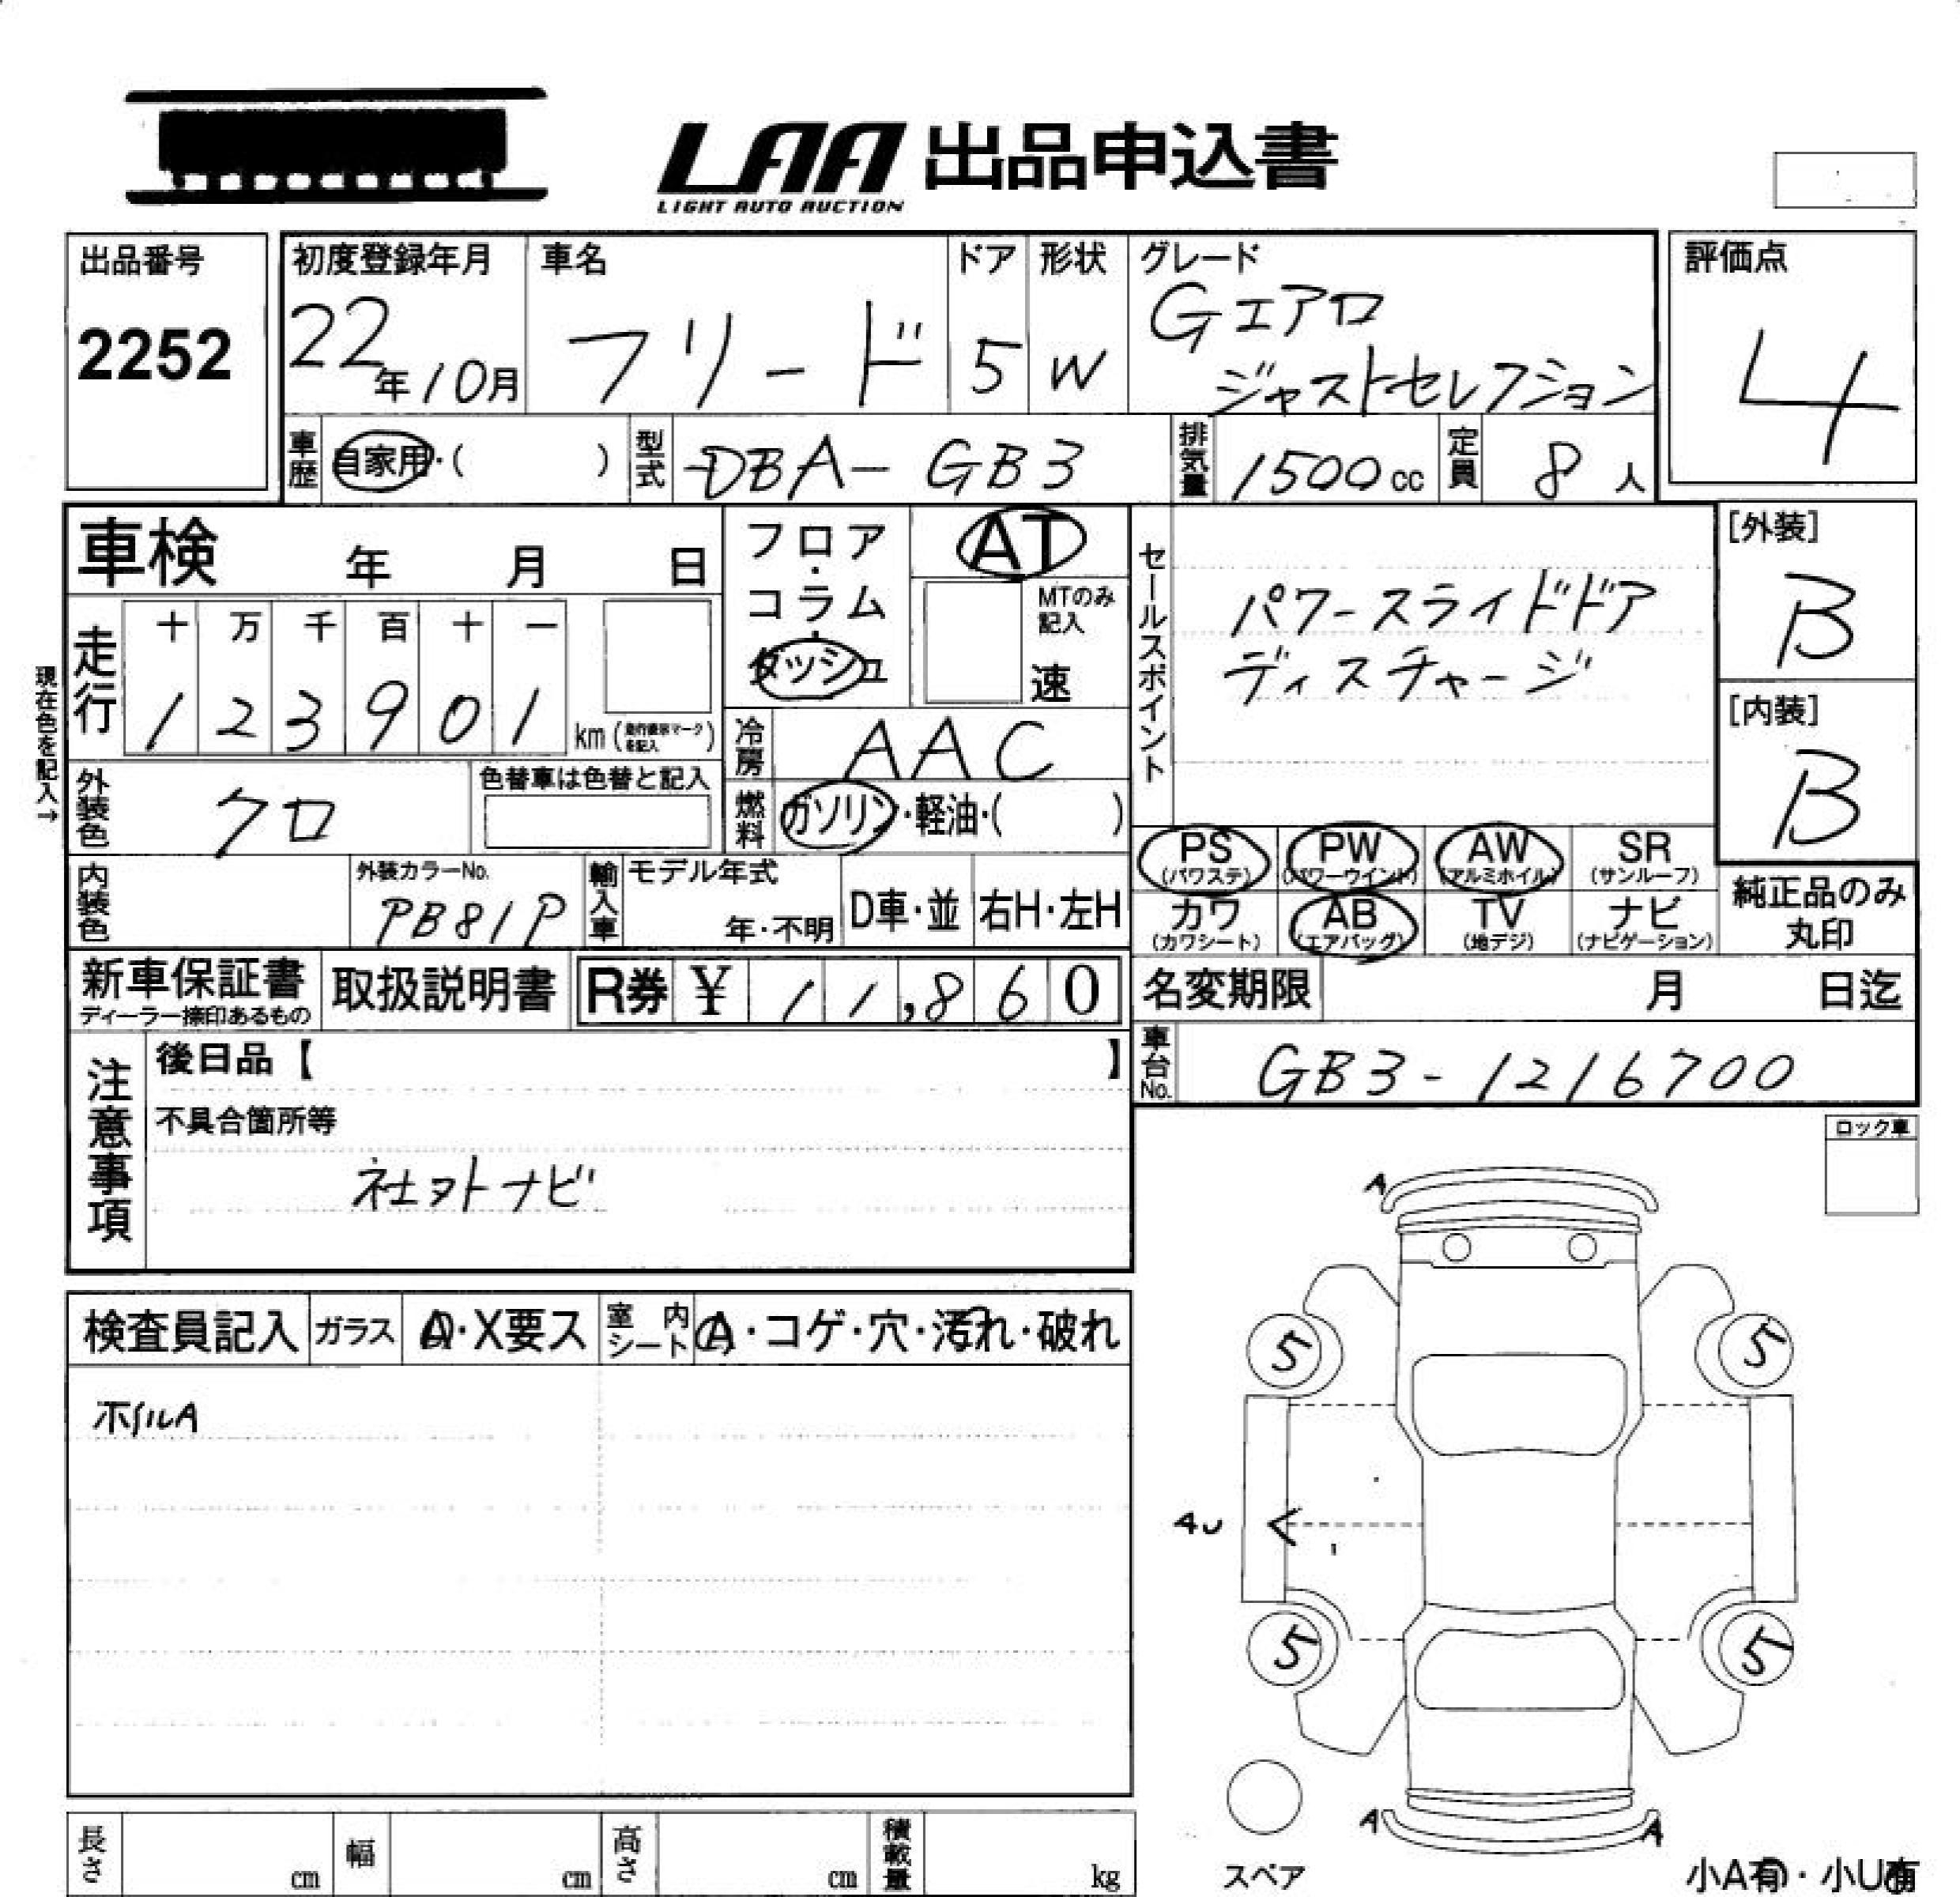 LAA 出品申込書
LIGHT AUTO AUCTION
出品番号
2252
初度登録年月
22年10月
車名
フリード
ドア
5
形状
W
グレード
Gエアロ
ジャストセレクション
評価点
4
車歴 自家用・( )
型式 DBA-GB3
排気量 1500cc
定員 8人
車検 年 月 日
フロア・コラム・ダッシュ
AT
MTのみ記入
速
セールスポイント
パワースライドドア
ディスチャージ
[外装]
B
[内装]
B
現在色を記入→
走行
十 万 千 百 十 一
1 2 3 9 0 1 km(走行表示マークを記入)
冷房 AAC
外装色 クロ
色替車は色替と記入
燃料 ガソリン・軽油・( )
PS (パワステ)
PW (パワーウインド)
AW (アルミホイル)
SR (サンルーフ)
カワ (カワシート)
AB (エアバッグ)
TV (地デジ)
ナビ (ナビゲーション)
純正品のみ丸印
内装色
外装カラーNo.
PB81P
輸入車
モデル年式
年・不明
D車・並
右H・左H
新車保証書
ディーラー捺印あるもの
取扱説明書
R券 ¥ 11,860
名変期限 月 日迄
車台No. GB3-1216700
注意事項
後日品【 】
不具合箇所等
社外ナビ
ロック車
検査員記入
ガラス A・X要ス
室内シート A・コゲ・穴・汚れ・破れ
ホイルA
A
5 5
4U <
5 5
A A
スペア
小A有・小U有
長さ cm
幅 cm
高さ cm
積載量 kg